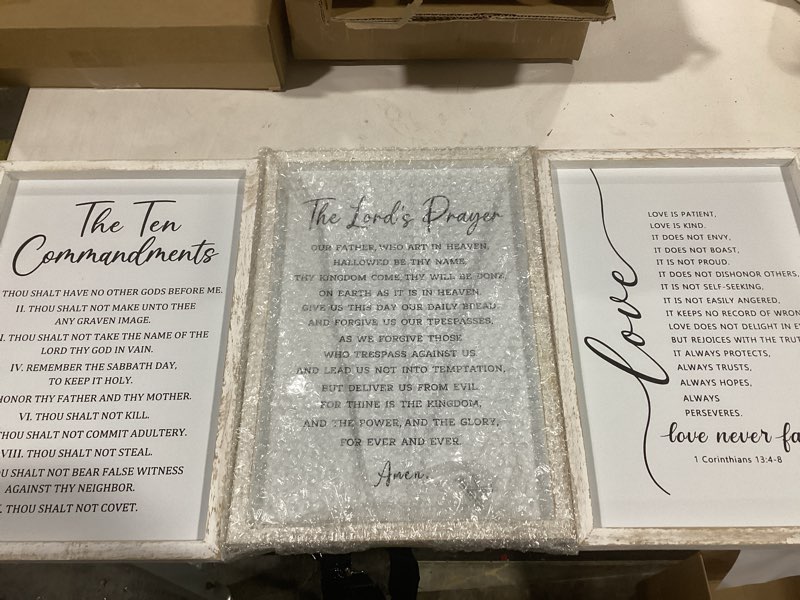 The Ten
Commandments
THOU SHALT HAVE NO OTHER GODS BEFORE ME.
II. THOU SHALT NOT MAKE UNTO THEE
ANY GRAVEN IMAGE.
I. THOU SHALT NOT TAKE THE NAME OF THE
LORD THY GOD IN VAIN.
IV. REMEMBER THE SABBATH DAY,
TO KEEP IT HOLY.
HONOR THY FATHER AND THY MOTHER.
VI. THOU SHALT NOT KILL.
THOU SHALT NOT COMMIT ADULTERY.
VIII. THOU SHALT NOT STEAL.
OU SHALT NOT BEAR FALSE WITNESS
AGAINST THY NEIGHBOR.
. THOU SHALT NOT COVET.
The Lord's Prayer
OUR FATHER, WHO ART IN HEAVEN,
HALLOWED BE THY NAME.
THY KINGDOM COME, THY WILL BE DONE,
ON EARTH AS IT IS IN HEAVEN.
GIVE US THIS DAY OUR DAILY BREAD.
AND FORGIVE US OUR TRESPASSES,
AS WE FORGIVE THOSE
WHO TRESPASS AGAINST US.
AND LEAD US NOT INTO TEMPTATION,
BUT DELIVER US FROM EVIL.
FOR THINE IS THE KINGDOM,
AND THE POWER, AND THE GLORY,
FOR EVER AND EVER.
Amen.
love
LOVE IS PATIENT,
LOVE IS KIND.
IT DOES NOT ENVY,
IT DOES NOT BOAST,
IT IS NOT PROUD.
IT DOES NOT DISHONOR OTHERS,
IT IS NOT SELF-SEEKING,
IT IS NOT EASILY ANGERED,
IT KEEPS NO RECORD OF WRON
LOVE DOES NOT DELIGHT IN EV
BUT REJOICES WITH THE TRUT
IT ALWAYS PROTECTS,
ALWAYS TRUSTS,
ALWAYS HOPES,
ALWAYS
PERSEVERES.
love never fa
1 Corinthians 13:4-8